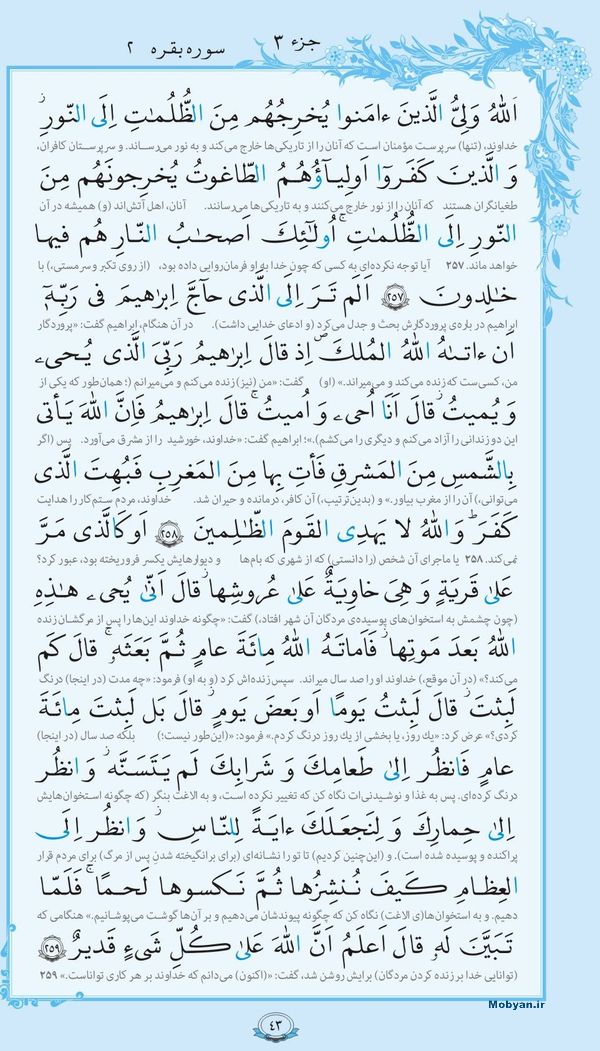 جزء ۳
سوره بقره ۲
اَللهُ وَلِیُّ الَّذینَ ءامَنوا یُخرِجُهُم مِنَ الظُّلُمٰتِ اِلَی النّورِۖ
خداوند، (تنها) سرپرست مؤمنان است که آنان را از تاریکی‌ها خارج می‌کند و به نور می‌رساند. و سرپرستان کافران،
وَ الَّذینَ کَفَرَوٓا اَولِیـآؤُهُمُ الطّاغوتُ یُخرِجونَهُم مِنَ
طغیانگران هستند که آنان را از نور خارج می‌کنند و به تاریکی‌ها می‌رسانند. آنان، اهل آتش‌اند (و) همیشه در آن
النّورِ اِلَی الظُّلُمٰتِۚ اُولٰٓئِكَ اَصحٰبُ النّارِ هُم فیها
خواهد ماند. ۲۵۷ آیا توجه نکرده‌ای به کسی که چون خدا به او فرمان‌روایی داده بود، (از روی تکبر و سرمستی،) با
خٰلِدونَ ﴿۲۵۷﴾ اَلَم تَرَ اِلَی الَّذی حآجَّ اِبرٰهیمَ فی رَبِّهٖٓ
ابراهیم در باره‌ی پروردگارش بحث و جدل می‌کرد (و ادعای خدایی داشت). در آن هنگام، ابراهیم گفت: «پروردگار
اَن ءاتىٰهُ اللهُ المُلكَ اِذ قالَ اِبرٰهیمُ رَبِّیَ الَّذی یُحیۦ
من، کسی‌ست که زنده می‌کند و می‌میراند.» (او) گفت: «من (نیز) زنده می‌کنم و می‌میرانم (؛ همان‌طور که یکی از
وَ یُمیتُ قالَ اَنَا اُحیۦ وَ اُمیتُۖ قالَ اِبرٰهیمُ فَاِنَّ اللهَ یَأتی
این دو زندانی را آزاد می‌کنم و دیگری را می‌کشم).»؛ ابراهیم گفت: «خداوند، خورشید را از مشرق می‌آورد. پس (اگر
بِالشَّمسِ مِنَ المَشرِقِ فَأتِ بِها مِنَ المَغرِبِ فَبُهِتَ الَّذی
می‌توانی،) آن را از مغرب بیاور.» و (بدین‌ترتیب،) آن کافر، درمانده و حیران شد. خداوند، مردم ستم‌کار را هدایت
کَفَرَۗ وَاللهُ لا یَهدِی القَومَ الظّٰلِمینَ ﴿۲۵۸﴾ اَو کَالَّذی مَرَّ
نمی‌کند. ۲۵۸ یا ماجرای آن شخص (را دانستی) که از شهری که بام‌ها و دیوارهایش یکسر فروریخته بود، عبور کرد؟
عَلیٰ قَریَةٍ وَ هِیَ خاوِیَةٌ عَلیٰ عُروشِها قالَ اَنّیٰ یُحیۦ هٰذِهِ
(چون چشمش به استخوان‌های پوسیده‌ی مردگان آن شهر افتاد،) گفت: «چگونه خداوند این‌ها را پس از مرگشان زنده
اللهُ بَعدَ مَوتِهاۖ فَاَماتَهُ اللهُ مِائَةَ عامٍ ثُمَّ بَعَثَهٗۖ قالَ کَم
می‌کند؟» (در آن موقع،) خداوند او را صد سال میراند. سپس زنده‌اش کرد (و به او) فرمود: «چه مدت (در اینجا) درنگ
لَبِثتَۖ قالَ لَبِثتُ یَومًا اَو بَعضَ یَومٍۖ قالَ بَل لَبِثتَ مِائَةَ
کردی؟» عرض کرد: «یك روز، یا بخشی از یك روز درنگ کردم.» فرمود: «(این‌طور نیست؛) بلکه صد سال (در اینجا)
عامٍ فَانظُر اِلیٰ طَعامِكَ وَ شَرابِكَ لَم یَتَسَنَّهۖ وَ انظُر
درنگ کرده‌ای. پس به غذا و نوشیدنی‌ات نگاه کن که تغییر نکرده است، و به الاغت بنگر (که چگونه استخوان‌هایش
اِلیٰ حِمارِكَ وَ لِنَجعَلَكَ ءایَةً لِلنّاسِۖ وَ انظُر اِلَی
پراکنده و پوسیده شده است). و (این‌چنین کردیم) تا تو را نشانه‌ای (برای برانگیخته شدنِ پس از مرگ) برای مردم قرار
العِظامِ کَیفَ نُنشِزُها ثُمَّ نَکسوها لَحمًاۚ فَلَمّا
دهیم. و به استخوان‌ها(ی الاغت) نگاه کن که چگونه پیوندشان می‌دهیم و بر آن‌ها گوشت می‌پوشانیم.» هنگامی که
تَبَیَّنَ لَهٗ قالَ اَعلَمُ اَنَّ اللهَ عَلیٰ کُلِّ شَیءٍ قَدیرٌ ﴿۲۵۹﴾
(توانایی خدا بر زنده کردن مردگان) برایش روشن شد، گفت: «(اکنون) می‌دانم که خداوند بر هر کاری تواناست.» ۲۵۹
Mobyan.ir
۴۳